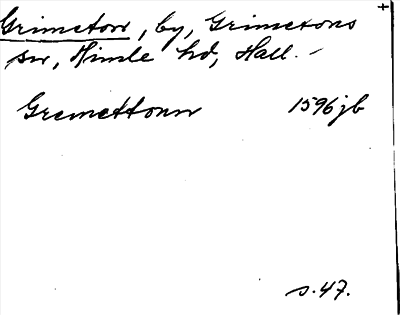 Grimeton, by, Grimetons
sn, Himle hd, Hall.
Gremettonn 1596 jb
s. 47.